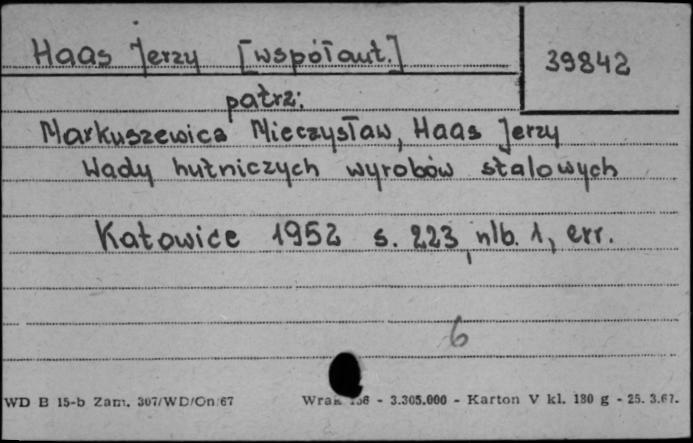 Haas Jerzy [współaut.]
39842
patrz:
Markuszewicz Mieczysław, Haas Jerzy
Wady hutniczych wyrobów stalowych
Katowice 1952 s. 223, nlb. 1, err.
6
WD B 15-b Zam. 307/WD/On/67 - 3.305.000 - Karton V kl. 180 g - 25. 3.67.